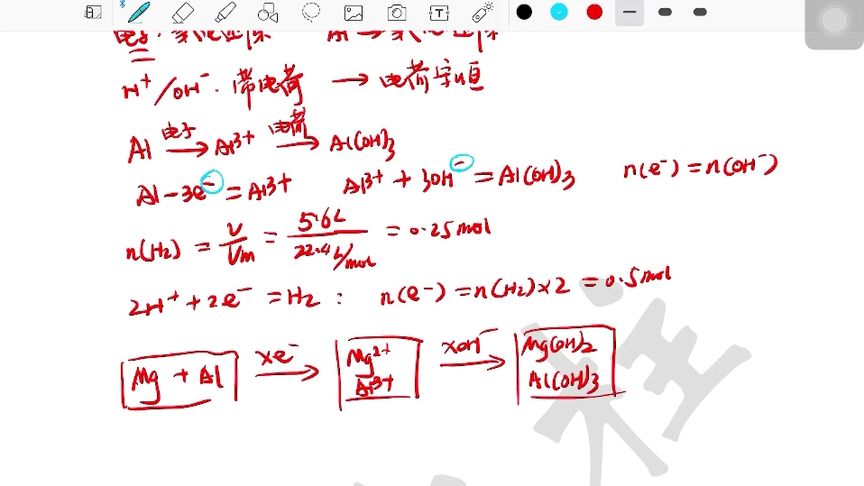 电子：氧化还原 Al → 氧化还原
H⁺/OH⁻：带电荷 → 电荷守恒
Al —电子→ Al³⁺ —电荷→ Al(OH)₃
Al − 3e⁻ = Al³⁺ Al³⁺ + 3OH⁻ = Al(OH)₃ n(e⁻) = n(OH⁻)
n(H₂) = V/Vm = 5.6L/22.4L/mol = 0.25mol
2H⁺ + 2e⁻ = H₂ : n(e⁻) = n(H₂)×2 = 0.5mol
Mg + Al —xe⁻→ Mg²⁺ Al³⁺ —xOH⁻→ Mg(OH)₂ Al(OH)₃
程